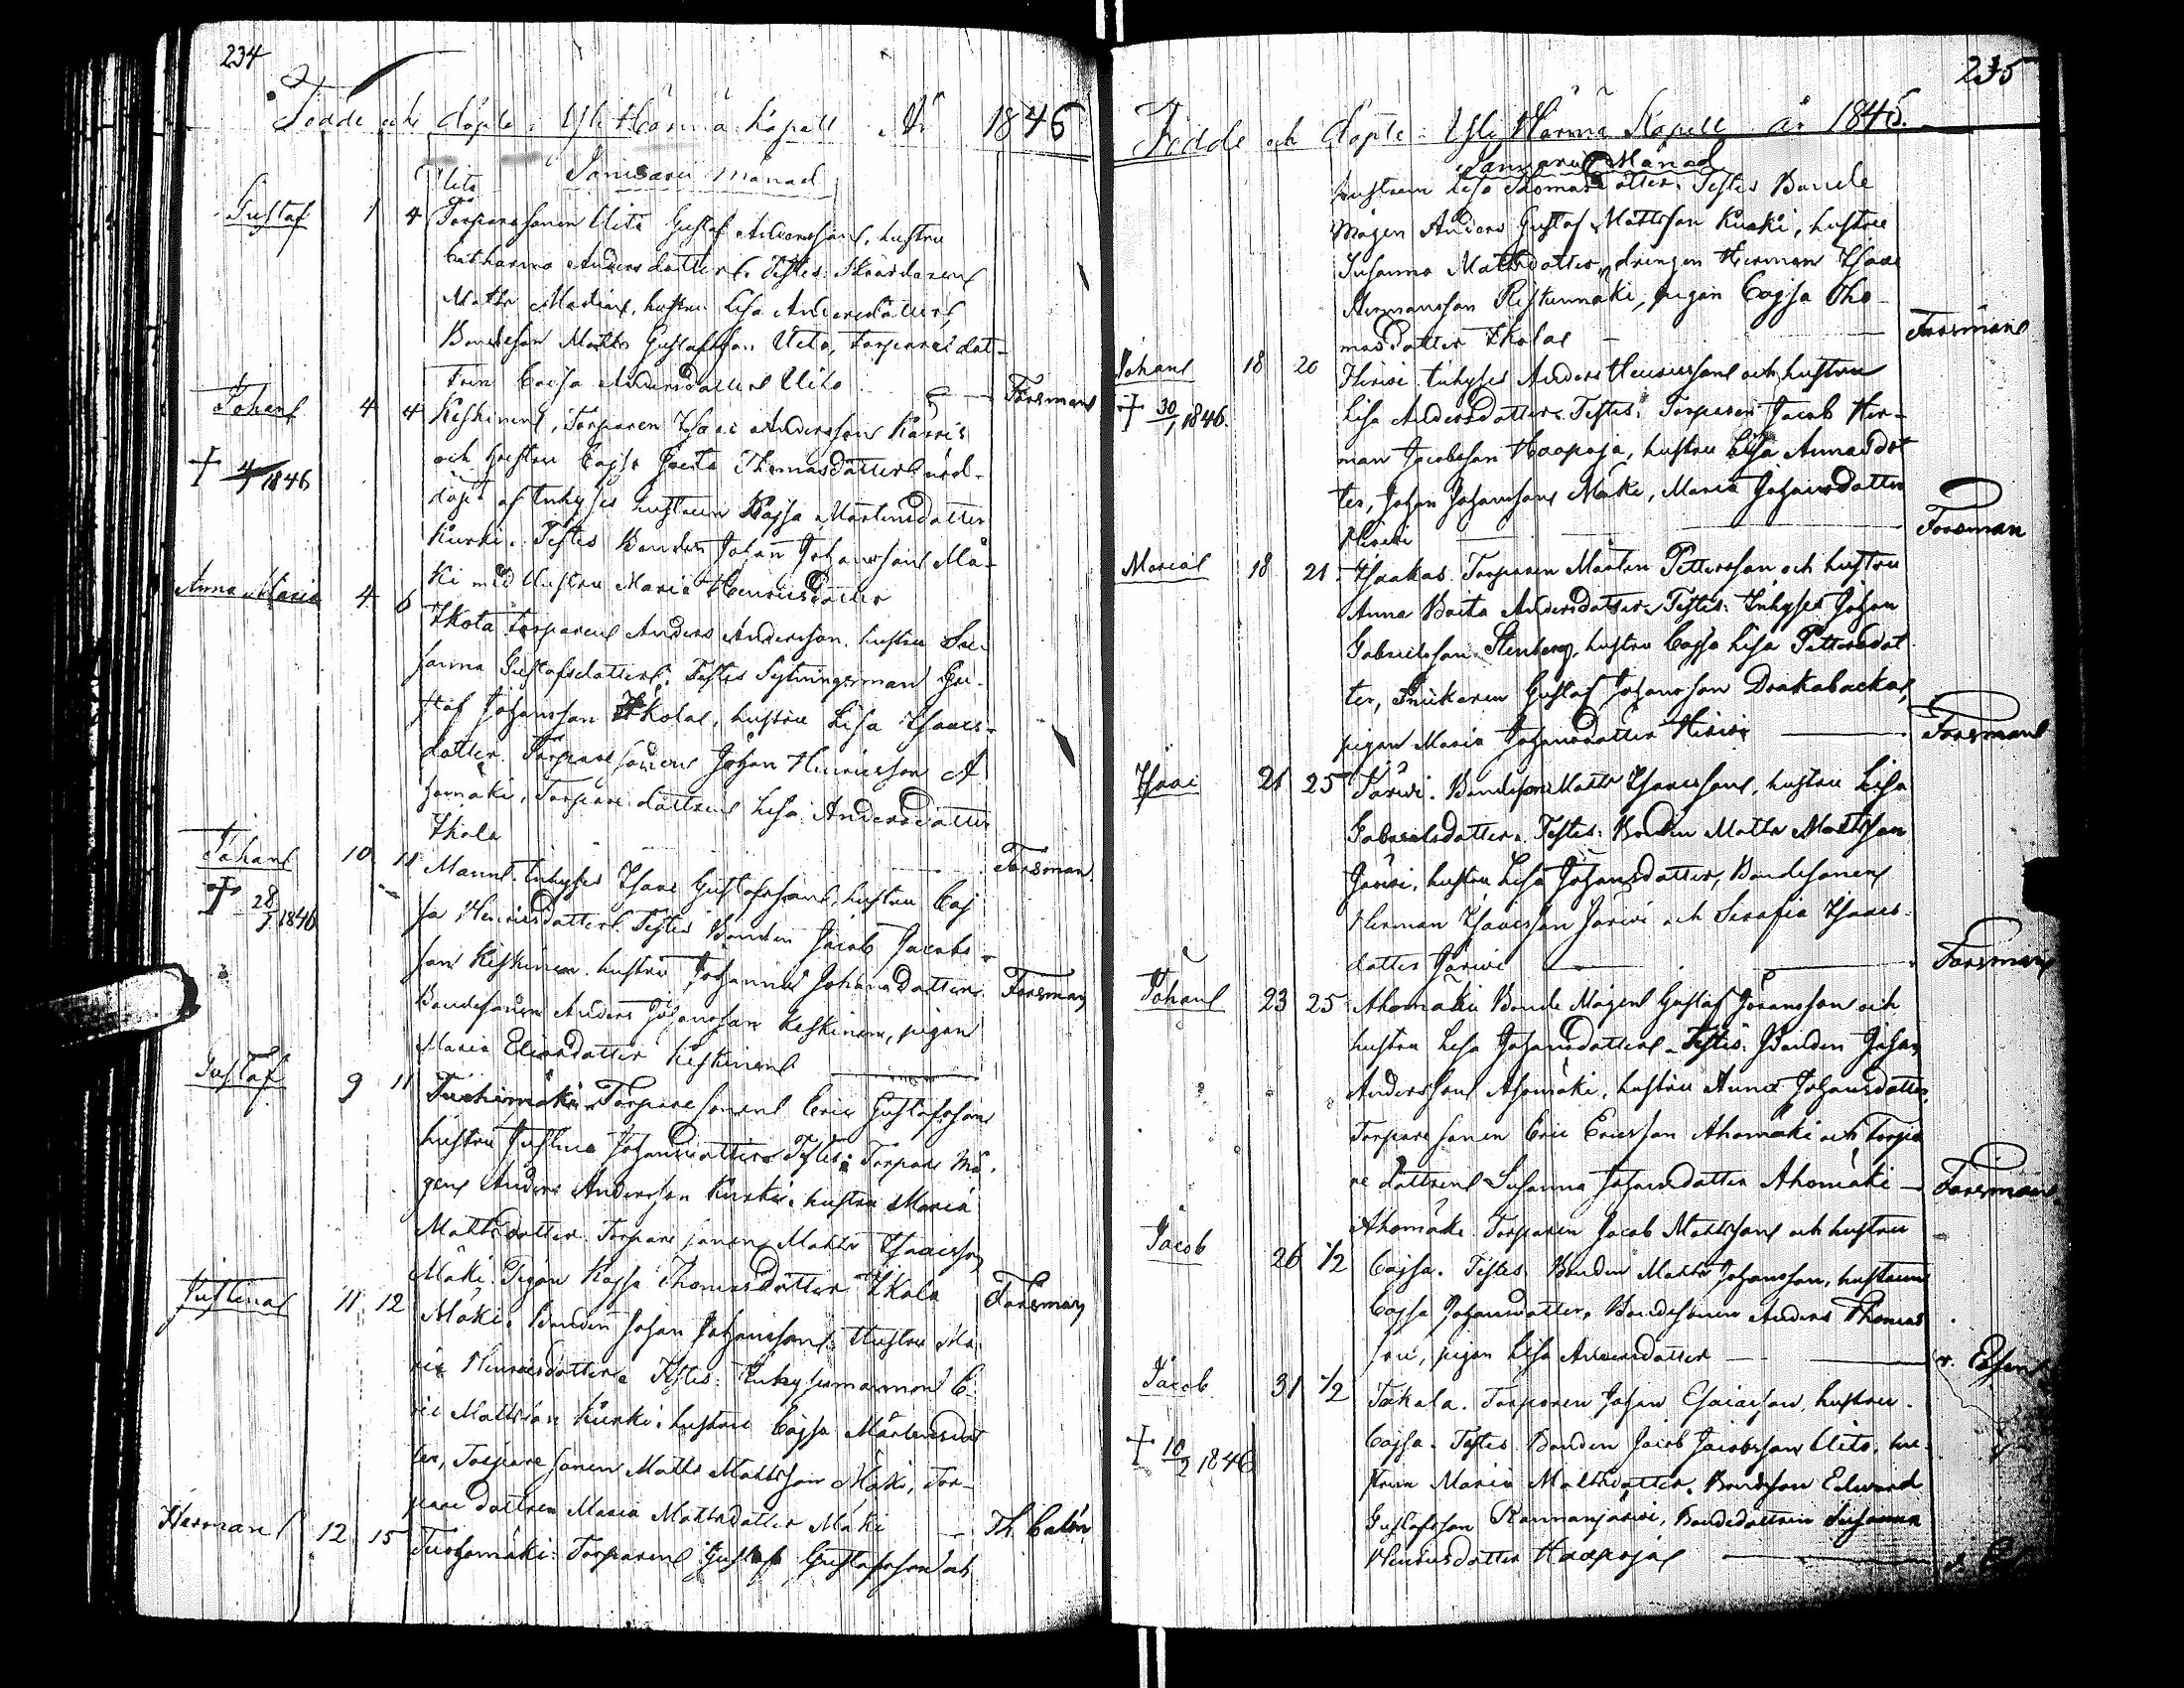 234
Födde och döpte i Yli Härmä Kapell År 1846
Januarii Månad
Uito
Gustaf 1 4 Torparesonen Uito Gustaf Andersson, hustru
Catharina Andersdotter. Testes: Skräddaren
Matts Mattsson, hustru Lisa Andersdotter,
Bondeson Matts Gustafsson Uito, torparedot-
tren Caisa Andersdotter Uito Forsman
Johan 4 4 Keskinen, Torparen Isaac Andersson Karris
och hustru Cajsa Thomasdotter nöd-
döpt af Inhyses hustrun Kajsa Mårtensdotter
† 4/1 1846
Kurki. Testes Bonden Johan Johansson Mä-
ki med Hustru Maria Henricsdotter
Anna Maria 4 6 Ikola torparen Anders Andersson, hustru Su-
sanna Gustafsdotter. Testes Sytningsman Gu-
staf Johansson Ikola, hustru Lisa Isaacs-
dotter. Torparesonen Johan Henricsson A
homäki, Torpare dottren Lisa Andersdotter
Ikola Forsman
Johan 10 11 Inhyses Isaac Gustafsson, hustru Caj
† 28/1 1846
sa Henricsdotter. Testes Bonden Jacob Jacobs-
son Keskinen, hustru Johanna Johansdotter Forsman
Bondesonen Anders Johansson Keskinen, pigan
Maria Eliasdotter Keskinen
Gustaf 9 11 Tuohimäki Torparesonen Eric Gustafsson
hustru Justina Johansdotter Testes: Torpare Må-
gen Anders Andersson Kurki, hustru Maria
Mattsdotter. Torparesonen Matts Isaacsson
Mäki. Pigan Kajsa Thomasdotter Ikola Forsman
Justina 11 12 Mäki. Bonden Johan Johansson Hustru Ma
ria Henricsdotter Testes: Inhysesmannen E-
ric Mattsson Kurki, hustru Cajsa Mårtensdot
ter, Torparesonen Matts Mattsson Mäki, Tor-
pare dottren Maria Mattsdotter Mäki Th. Calén
Herman 12 15 Tuohimäki Torparen Gustaf Gustafsson och
235
Födde och Döpte i Yli Härmä Kapell år 1846.
Januarii Månad
hustrun Lisa Thomasdotter. Testes Bonde
Mågen Anders Gustaf Mattsson Kurki, hustru
Susanna Mattsdotter, drengen Herman Isaac
Hermansson Ristunmäki, pigan Cajsa Tho-
masdotter Ikola Forsman
Johan 18 20 Hirvi Inhyses Anders Henricsson och hustru
† 30/1 1846.
Lisa Andersdotter. Testes: Torparen Jacob Her-
man Jacobsson Haapoja, hustru Lisa Annasdot
ter, Johan Johansson Mäki, Maria Johansdotter
Hirvi Forsman
Maria 18 21 Isaakas Torparen Mårten Pettersson och hustru
Anna Brita Andersdotter. Testes: Inhyses Johan
Gabrielsson Stenberg, hustru Cajsa Lisa Pettersdot
ter, Snickaren Gustaf Johansson Drakabacka,
pigan Maria Johansdotter Hirvi Forsman
Isaac 21 25 Järvi. Bondeson Matts Isaacsson, hustru Lisa
Gabrielsdotter. Testes: Bonden Matts Mattsson
Järvi, hustru Lisa Johansdotter, Bondesonen
Herman Isaacsson Järvi och Serafia Isaacs-
dotter Järvi Forsman
Johan 23 25 Ahomäki Bonde Mågen Gustaf Göransson och
hustru Lisa Johansdotter. Testes: Bonden Johan
Andersson Ahomäki, hustru Anna Johansdotter,
Torparesonen Eric Ericsson Ahomäki och Torpa
re dottren Susanna Johansdotter Ahomäki Forsman
Jacob 26 1/2 Ahomäki. Torparen Jacob Mattsson och hustru
Cajsa. Testes: Bonden Matts Johansson, hustrun
Cajsa Johansdotter, Bondesonen Anders Thomas
son, pigan Lisa Andersdotter
Jacob 31 1/2 Takala. Torparen Johan Esaiasson, hustru
† 10/2 1846
Cajsa. Testes Bonden Jacob Jacobsson Uito, hu-
strun Maria Mattsdotter. Bondeson Edward
Gustafsson Kannanjärvi, Bondedottren Susanna
Henricsdotter Haapoja